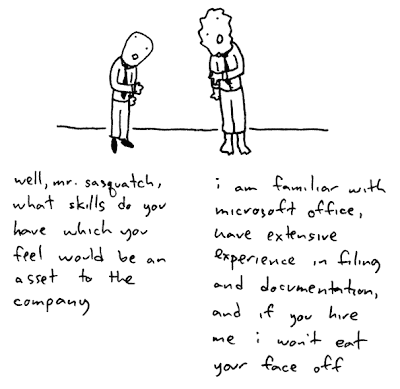 well, mr. sasquatch,
what skills do you
have which you
feel would be an
asset to the
company
i am familiar with
microsoft office,
have extensive
experience in filing
and documentation,
and if you hire
me i won't eat
your face off